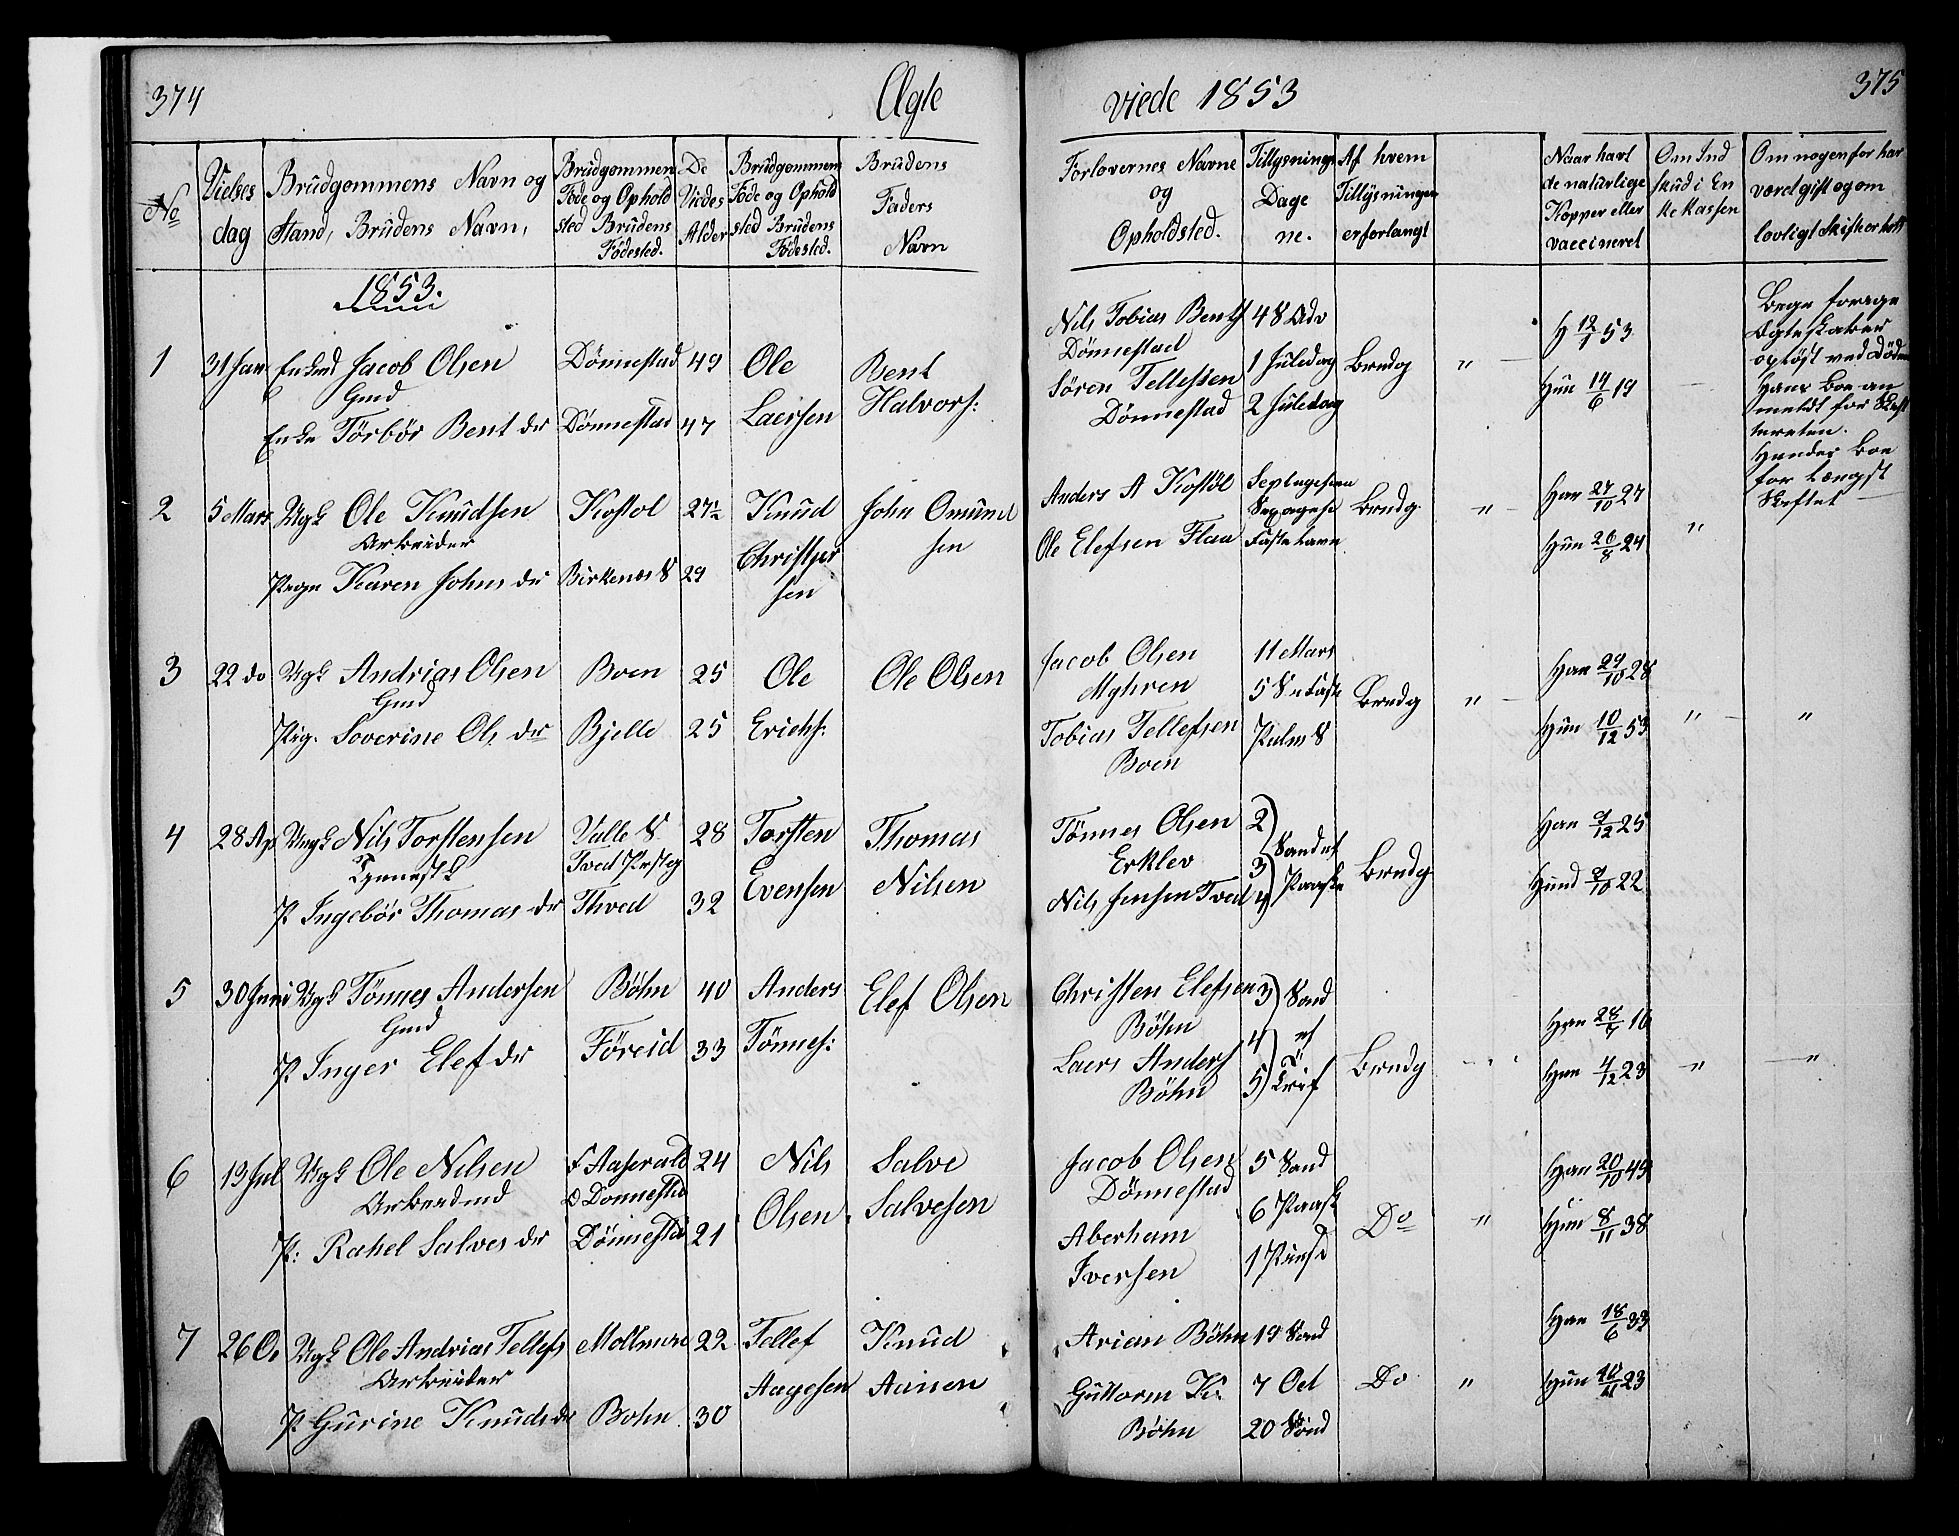 374
Ægte
viede 1853
375
No
Vielses dag
Brudgommens Navn og Stand, Brudens Navn,
Brudgommens Føde og Ophold sted Brudens Fødested.
De Viedes Alder
Brudgommens Føde og Ophold sted Brudens Fødested.
Brudens Faders Navn
Forlovernes Navne og Opholdsted.
Tillysnings Dage ne.
Af hvem Tillysningen er forlangt
Naar havt de naturlige Kopper eller vaccineret
Om Ind skud i En ke Kassen
Om nogen før har været gift og om lovligt Skifte er holt
1853.
1
31 Jan
Enkmd Jacob Olsen
Gmd
Enke Törbör Bent dr
Dönnestad
Dönnestad
49
47
Ole
Laersen
Bent
Halvors:
Nils Tobias Bents
Dönnestad
Sören Tellessen
Dönnestad
4 S Adv
1 Juledag
2 Juledag
Brudg
"
H 12/1 53
Hun 14/6 19
Bege forrige
Ægteskaber
opløst ved Döden
Hans Boe an
meldt for Skif
teretten.
Hendes Boe
for længst
Skiftet
2
5 Mars
Ugk Ole Knudsen
Arbeider
Pige Karen Johns dr
Kostol
Birkenes S
27½
29
Knud
Christper
sen
John Omund
sen
Anders A Kostöl
Ole Elefsen Flaa
Septugesim
Sexagese
Fastelavn
Brudg.
"
Han 27/10 27
Hun 26/8 24
"
3
22 do
Ugk Andrias Olsen
Gmd
Pig. Soverine Ols dr
Boen
Bjelle
25
25
Ole
Erichs:
Ole Olsen
Jacob Olsen
Myhren
Tobias Tellefsen
Boen
11 Mars
5 S i Faste
Palm S
Brudg
"
Han 29/10 28
Hun 10/12 53
"
"
4
28 Ap
Ungk Nils Torstensen
Tjenestk
P Ingebör Thomas dr
Valle S
Tved Prestg
Thved
28
32
Torsten
Evensen
Thomas
Nilsen
Tönnes Olsen
Erklev
Nils Jensen Tved
2
3
4
Sond ef
Paaske
Brudg
Han 9/12 25
Hund 9/10 22
5
30 Juni
Ugk Tönnes Andersen
Gmd
P Inger Elef dr
Böhn
Föreid
40
33
Anders
Tönnes:
Elef Olsen
Christen Elefsen
Böhn
Laers Anders
Böhn
3
4
5
Sond
ef
Trif
Brudg
Han 28/4 16
Hun 4/12 23
"
"
6
19 Jul
Ugk Ole Nilsen
Arbeidmd
P: Rahel Salves dr
F Aaserald
O Donnestad
Dönnestad
24
21
Nils
Olsen
Salve
Salvesen
Jacob Olsen
Dönnestad
Aberham
Iversen
5 Sond
6 Paask
1 Pinsd
Do
"
Han 20/10 49
Hun 8/11 38
7
26 Oc
Ugk Ole Andrias Tellefs
Arbeider
P Gurine Knuds dr
Mollmere
Bohn
22
30
Tellef
Aagesen
Knud
Aanen
Arian Böhn
Guttorm K.
Böhn
19 Sond
7 Oct
20 Sönd
Do
"
Han 18/6 33
Hun 23